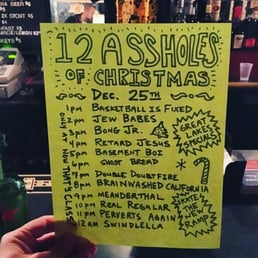 12 ASSHOLES
OF CHRISTMAS
DEC. 25TH
1PM BASKETBALL IS FIXED
2PM JEW BABES
3PM BONG JR.
4PM RETARD JESUS
5PM BASEMENT BOI
6PM GHOST BREAD
7PM DOUBLE DOUBTFIRE
8PM BRAINWASHED CALIFORNIA
9PM MEANDERTHAL
10PM REAL REGULAR
11PM PERVERTS AGAIN
12AM SWINDLELLA
ONLY AT
NOW THAT'S CLASS!
GREAT
LAKES
SPECIALS!
SKATE
THE NEW
RAMP!